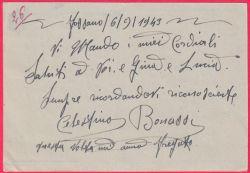 26
Fossano / 6/9/1943
Vi Mando i miei Cordiali
Saluti a Voi. e Gina e Lucia
Sempre ricordandovi riconoscente
Celestino Bonassi
questa volta un anno